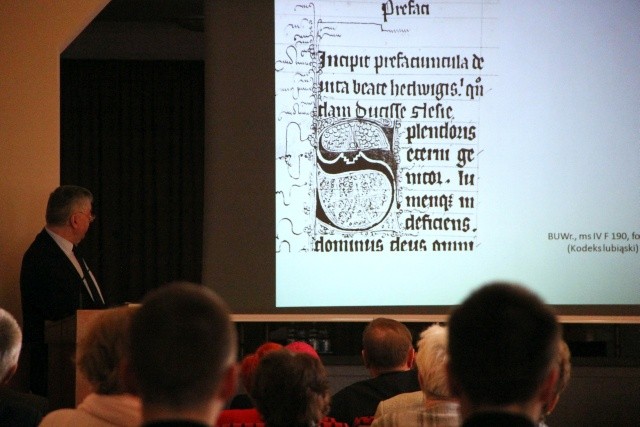 Prefaci
Incipit prefaciuncula de
uita beate hedwigis. qn
dam ducisse slesie
Splendoris
eterni ge
nitor. lu
menqz in
deficiens.
dominus deus omni
BUWr., ms IV F 190, fo
(Kodeks lubiąski)